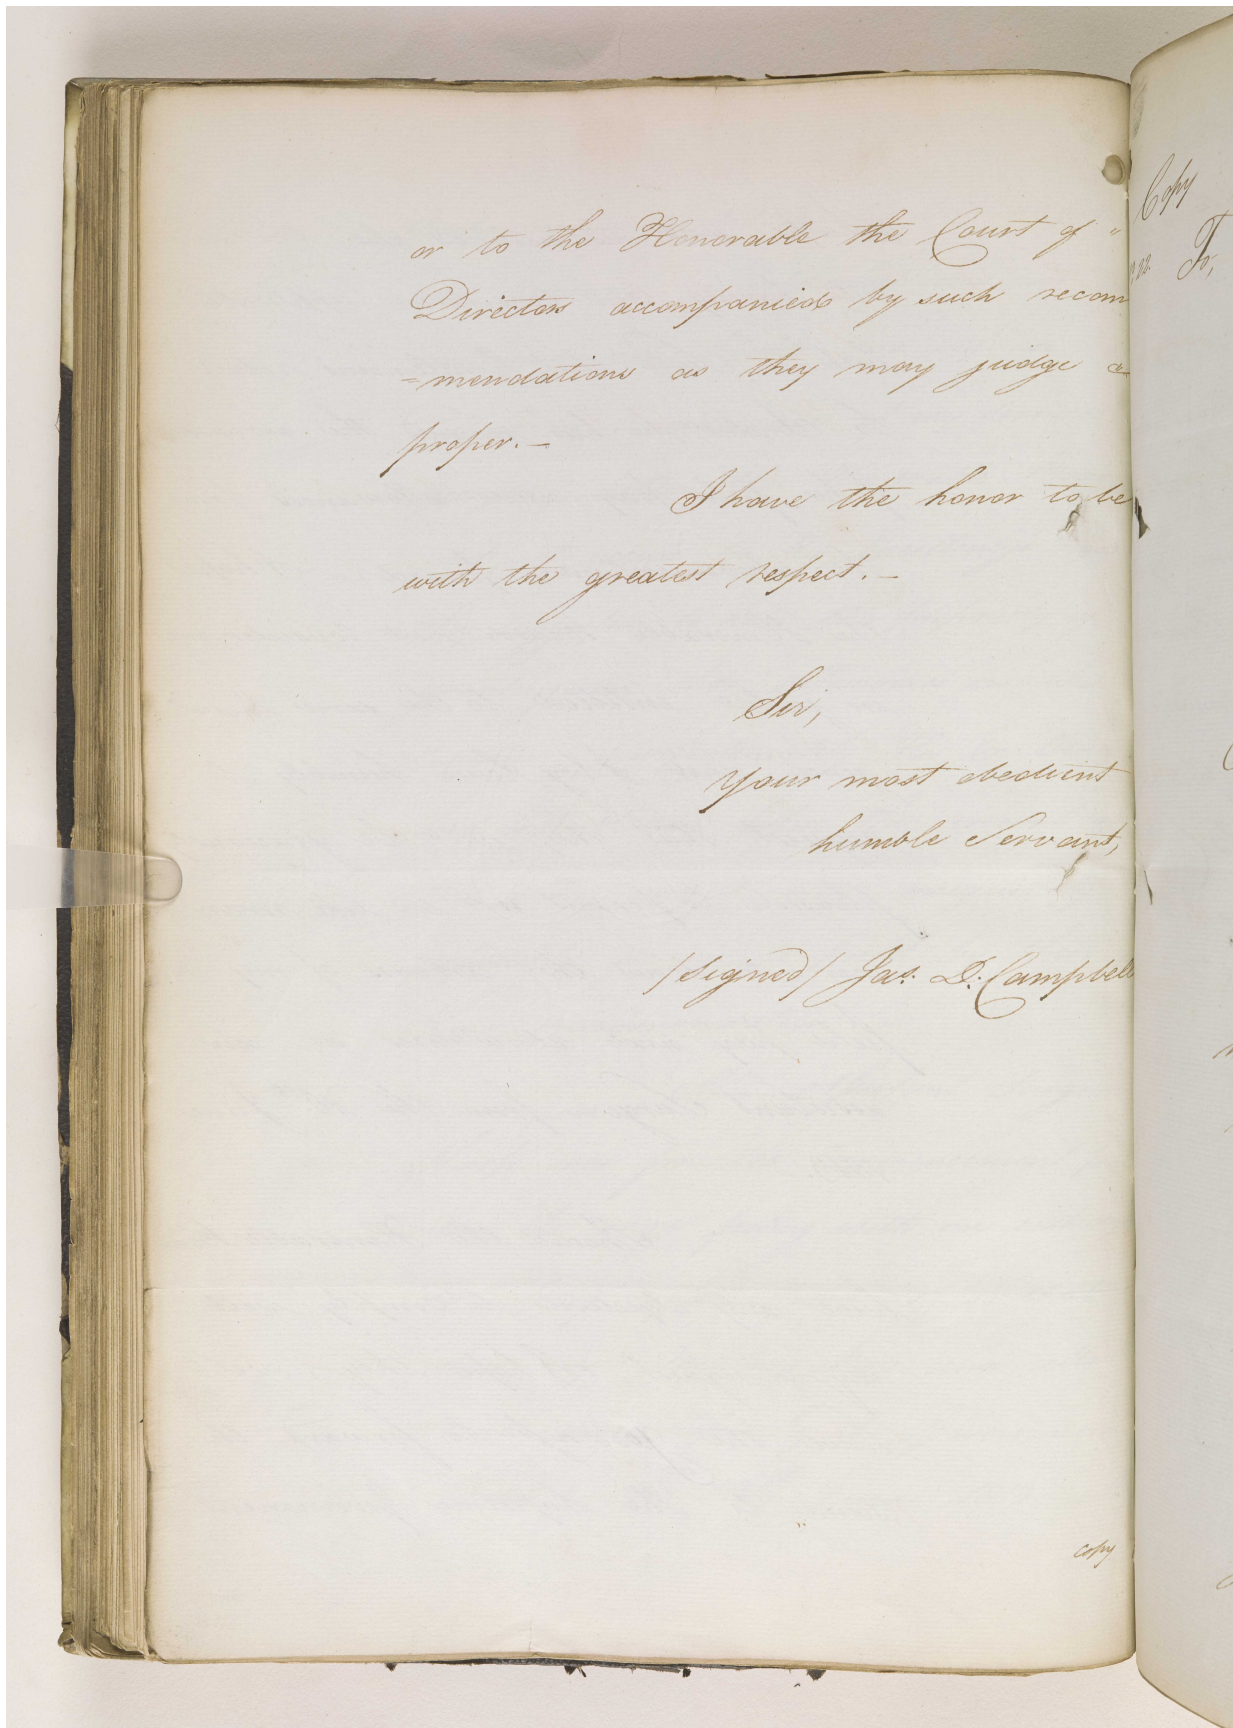 or to the Honorable the Court of "
Directors accompanied by such recom
=mendations as they may judge
proper.—
I have the honor to be
with the greatest respect.—
Sir,
Your most obedient
humble Servant,
/Signed/ Jas. D. Campbell
copy
Copy
To,